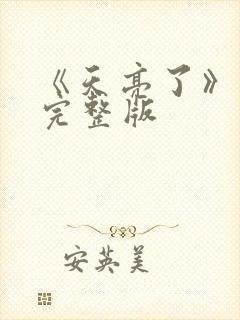 《天亮了》
完整版
安英美